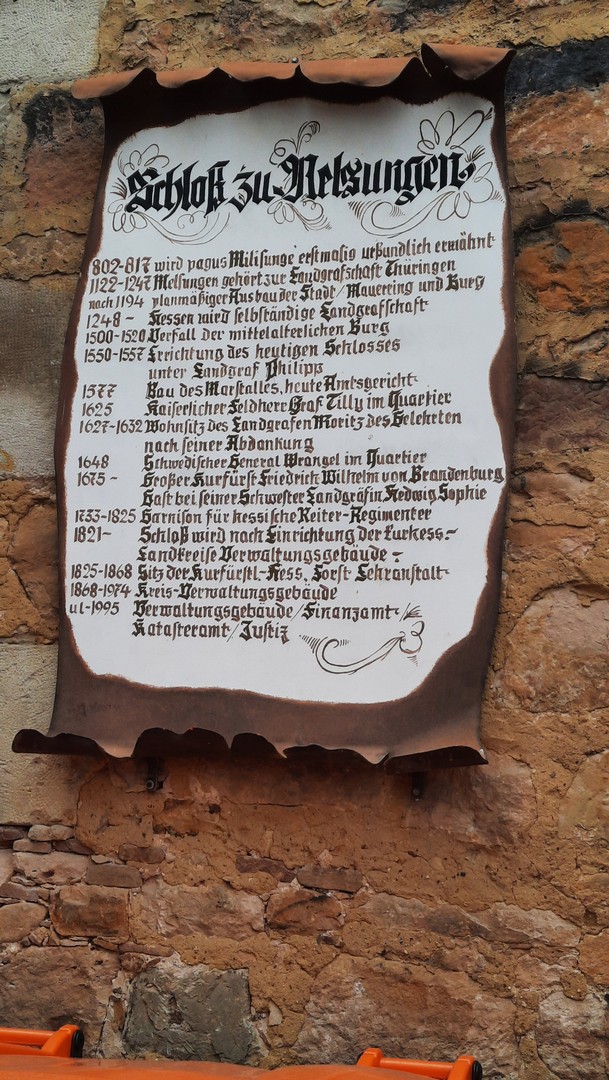 Schloß zu Melsungen
802-817 wird pagus Milisunge erstmalig urkundlich erwähnt
1122-1247 Melsungen gehört zur Landgrafschaft Thüringen
nach 1194 planmäßiger Ausbau der Stadt/Mauerring und Burg
1248- Hessen wird selbständige Landgrafschaft
1500-1520 Verfall der mittelalterlichen Burg
1550-1557 Errichtung des heutigen Schlosses
unter Landgraf Philipp
1577 Bau des Marstalles, heute Amtsgericht
1625 Kaiserlicher Feldherr Graf Tilly im Quartier
1627-1632 Wohnsitz des Landgrafen Moritz des Gelehrten
nach seiner Abdankung
1648 Schwedischer General Wrangel im Quartier
1675- Großer Kurfürst Friedrich Wilhelm von Brandenburg
Gast bei seiner Schwester Landgräfin Hedwig Sophie
1733-1825 Garnison für hessische Reiter-Regimenter
1821- Schloß wird nach Einrichtung der kurhess.-
Landkreise Verwaltungsgebäude-
1825-1868 Sitz der Kurfürstl.-Hess. Forst Lehranstalt
1868-1974 Kreis-Verwaltungsgebäude
ul-1995 Verwaltungsgebäude/Finanzamt/
Katasteramt/Justiz